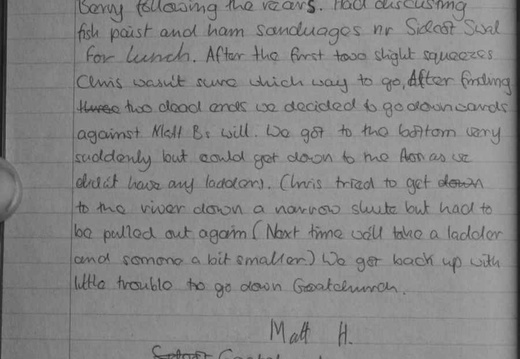 Berry following the rears. Had discusting
fish paist and ham sanduages nr Sidcot Swal
for lunch. After the first two slight squeezes
Chris wasn't sure which way to go, After finding
three two dead ends we decided to go downwards
against Matt B's will. We got to the bottom very
suddenly but could get down to the Aon as we
didn't have any ladders. Chris tried to get down
to the river down a narrow shute but had to
be pulled out again (Next time we'll take a ladder
and somone a bit smaller.) We got back up with
little trouble to go down Goatchurch.
Matt H.